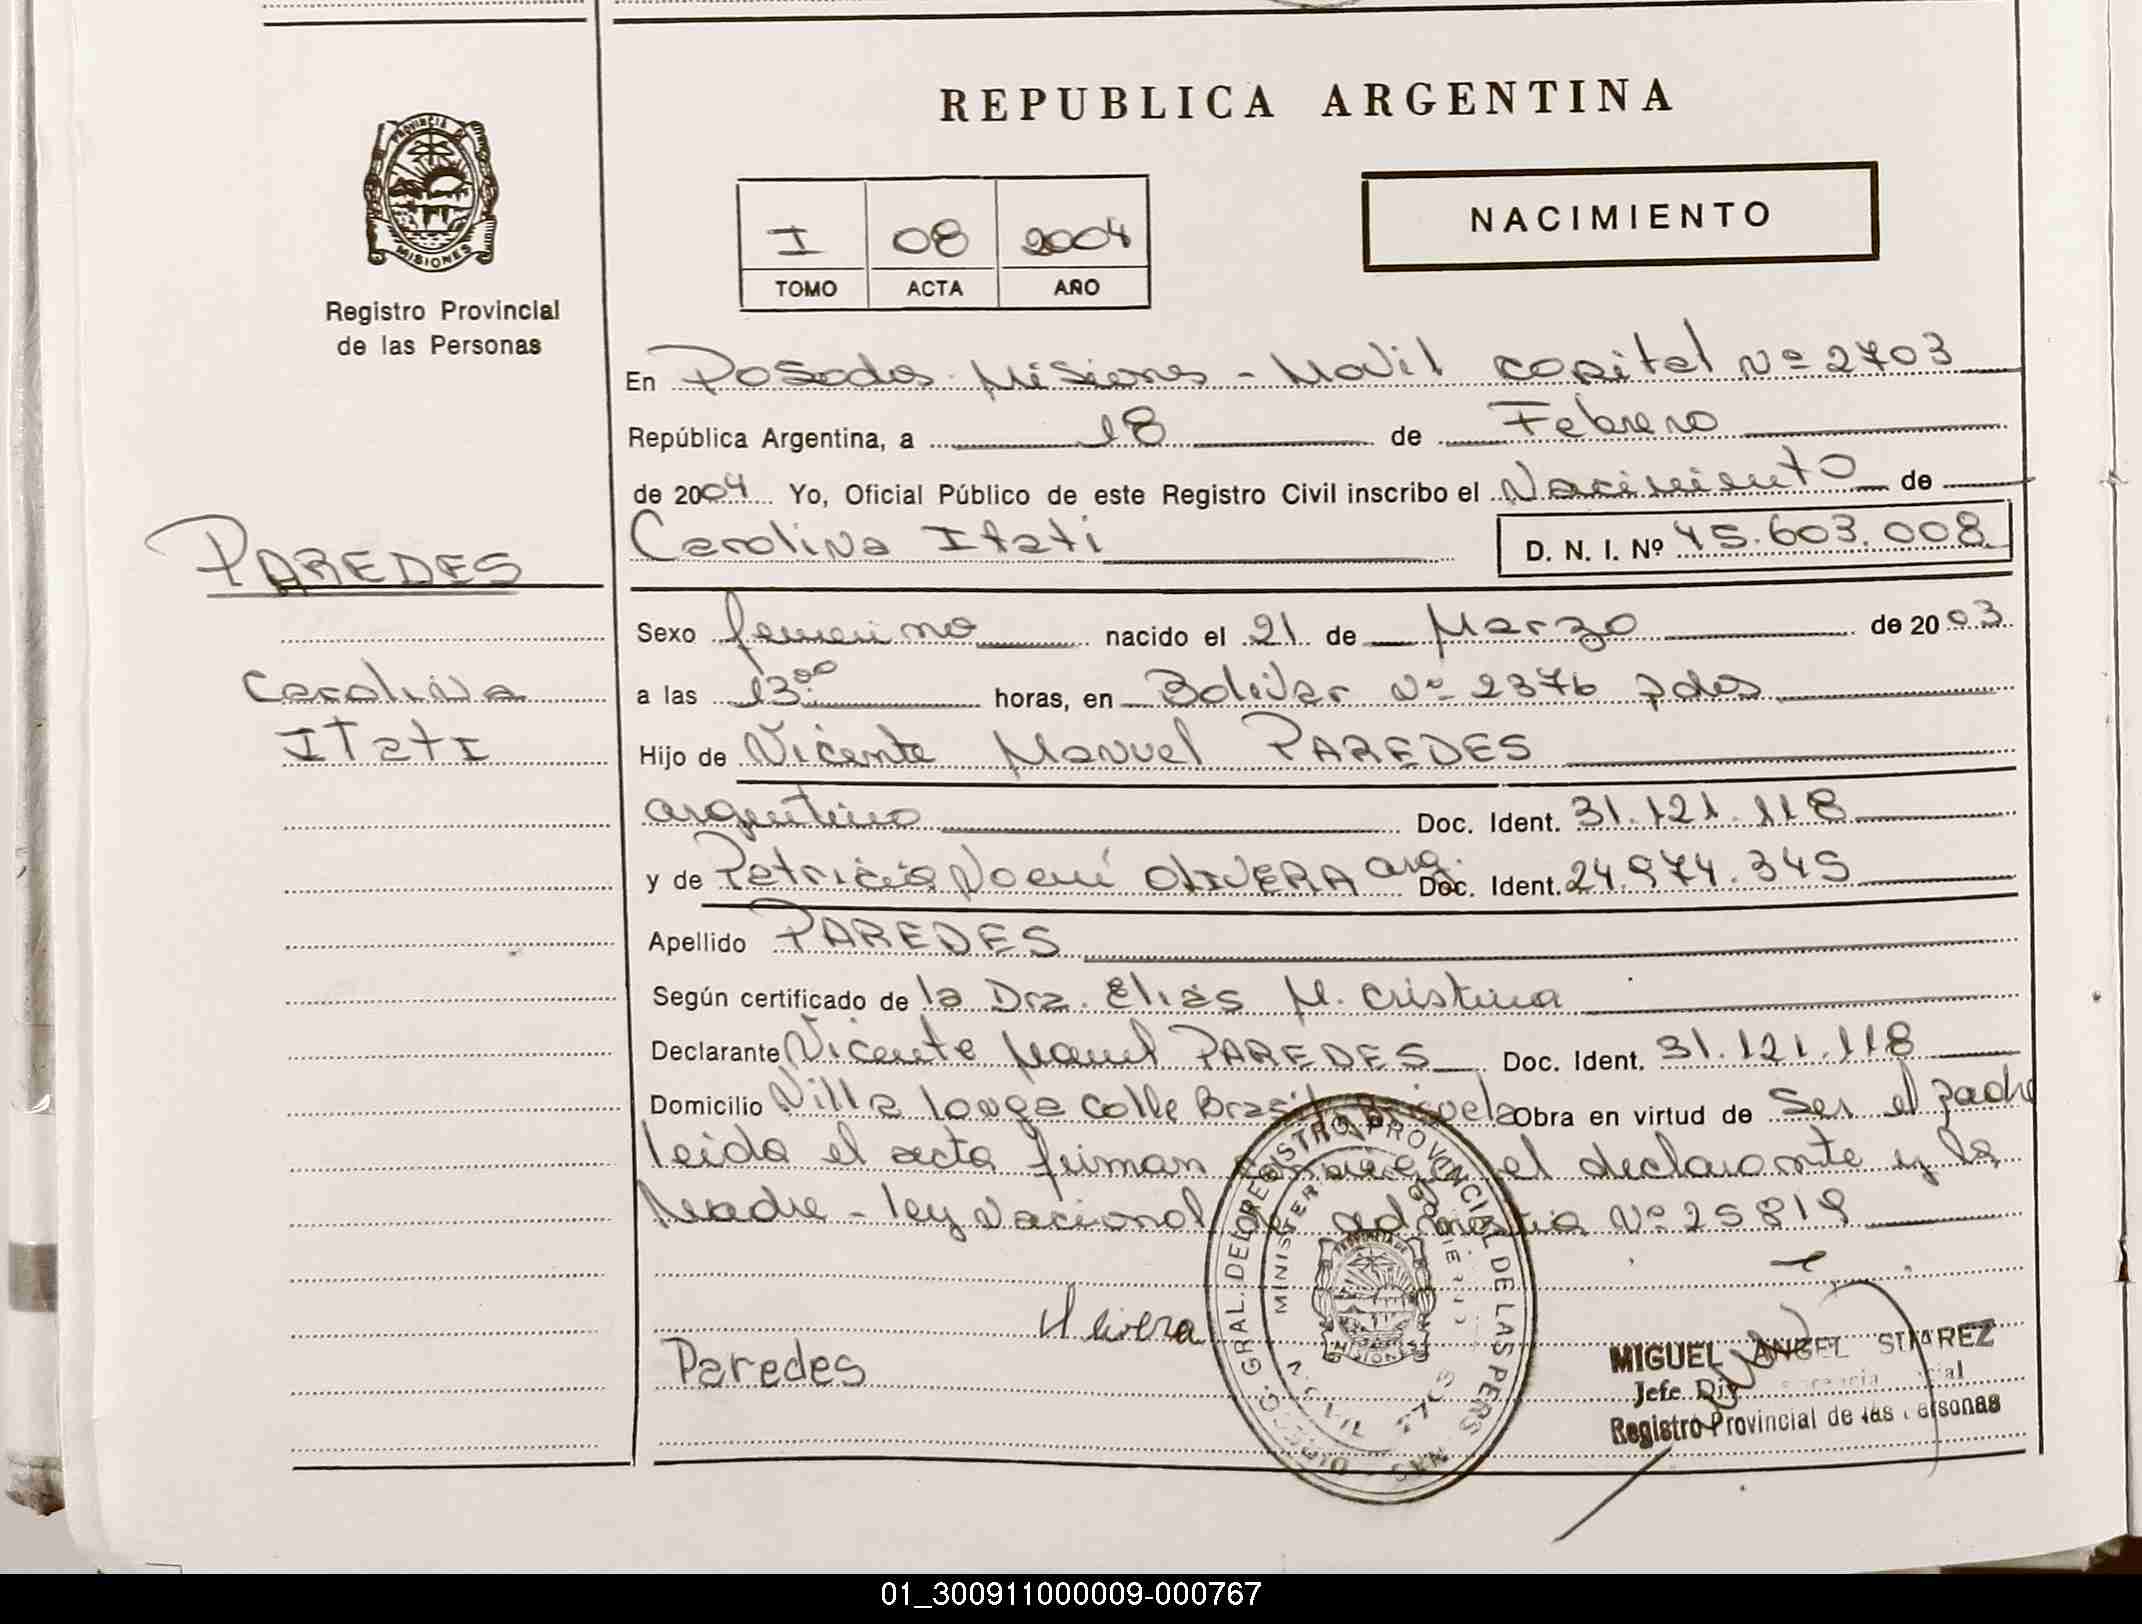 REPUBLICA ARGENTINA
PROVINCIA DE MISIONES
Registro Provincial
de las Personas
I 08 2004
TOMO ACTA AÑO
NACIMIENTO
En Posadas Misiones - Movil capital Nº 2703
República Argentina, a 18 de Febrero
de 2004 Yo, Oficial Público de este Registro Civil inscribo el Nacimiento de
Carolina Itati D. N. I. Nº 45.603.008
PAREDES
Carolina
ITatI
Sexo femenino nacido el 21 de Marzo de 2003
a las 13:00 horas, en Bolivar Nº 2376 pdas
Hijo de Vicente Manuel PAREDES
argentino Doc. Ident. 31.121.118
y de Patricia Noemí OLIVERA arg. Doc. Ident. 24.974.345
Apellido PAREDES
Según certificado de la Dra. Elias M. Cristina
Declarante Vicente Manuel PAREDES Doc. Ident. 31.121.118
Domicilio Villa Longa calle Brasil Obra en virtud de Ser el padre
leida el acta firman el declarante y la
Madre - ley Nacional de admistia Nº 25819
Olivera
Paredes
DIREC. GRAL. DEL REGISTRO PROVINCIAL DE LAS PERSONAS
MINISTERIO GOBIERNO
MIGUEL ANGEL SUAREZ
Jefe
Registro Provincial de las Personas
01_300911000009-000767